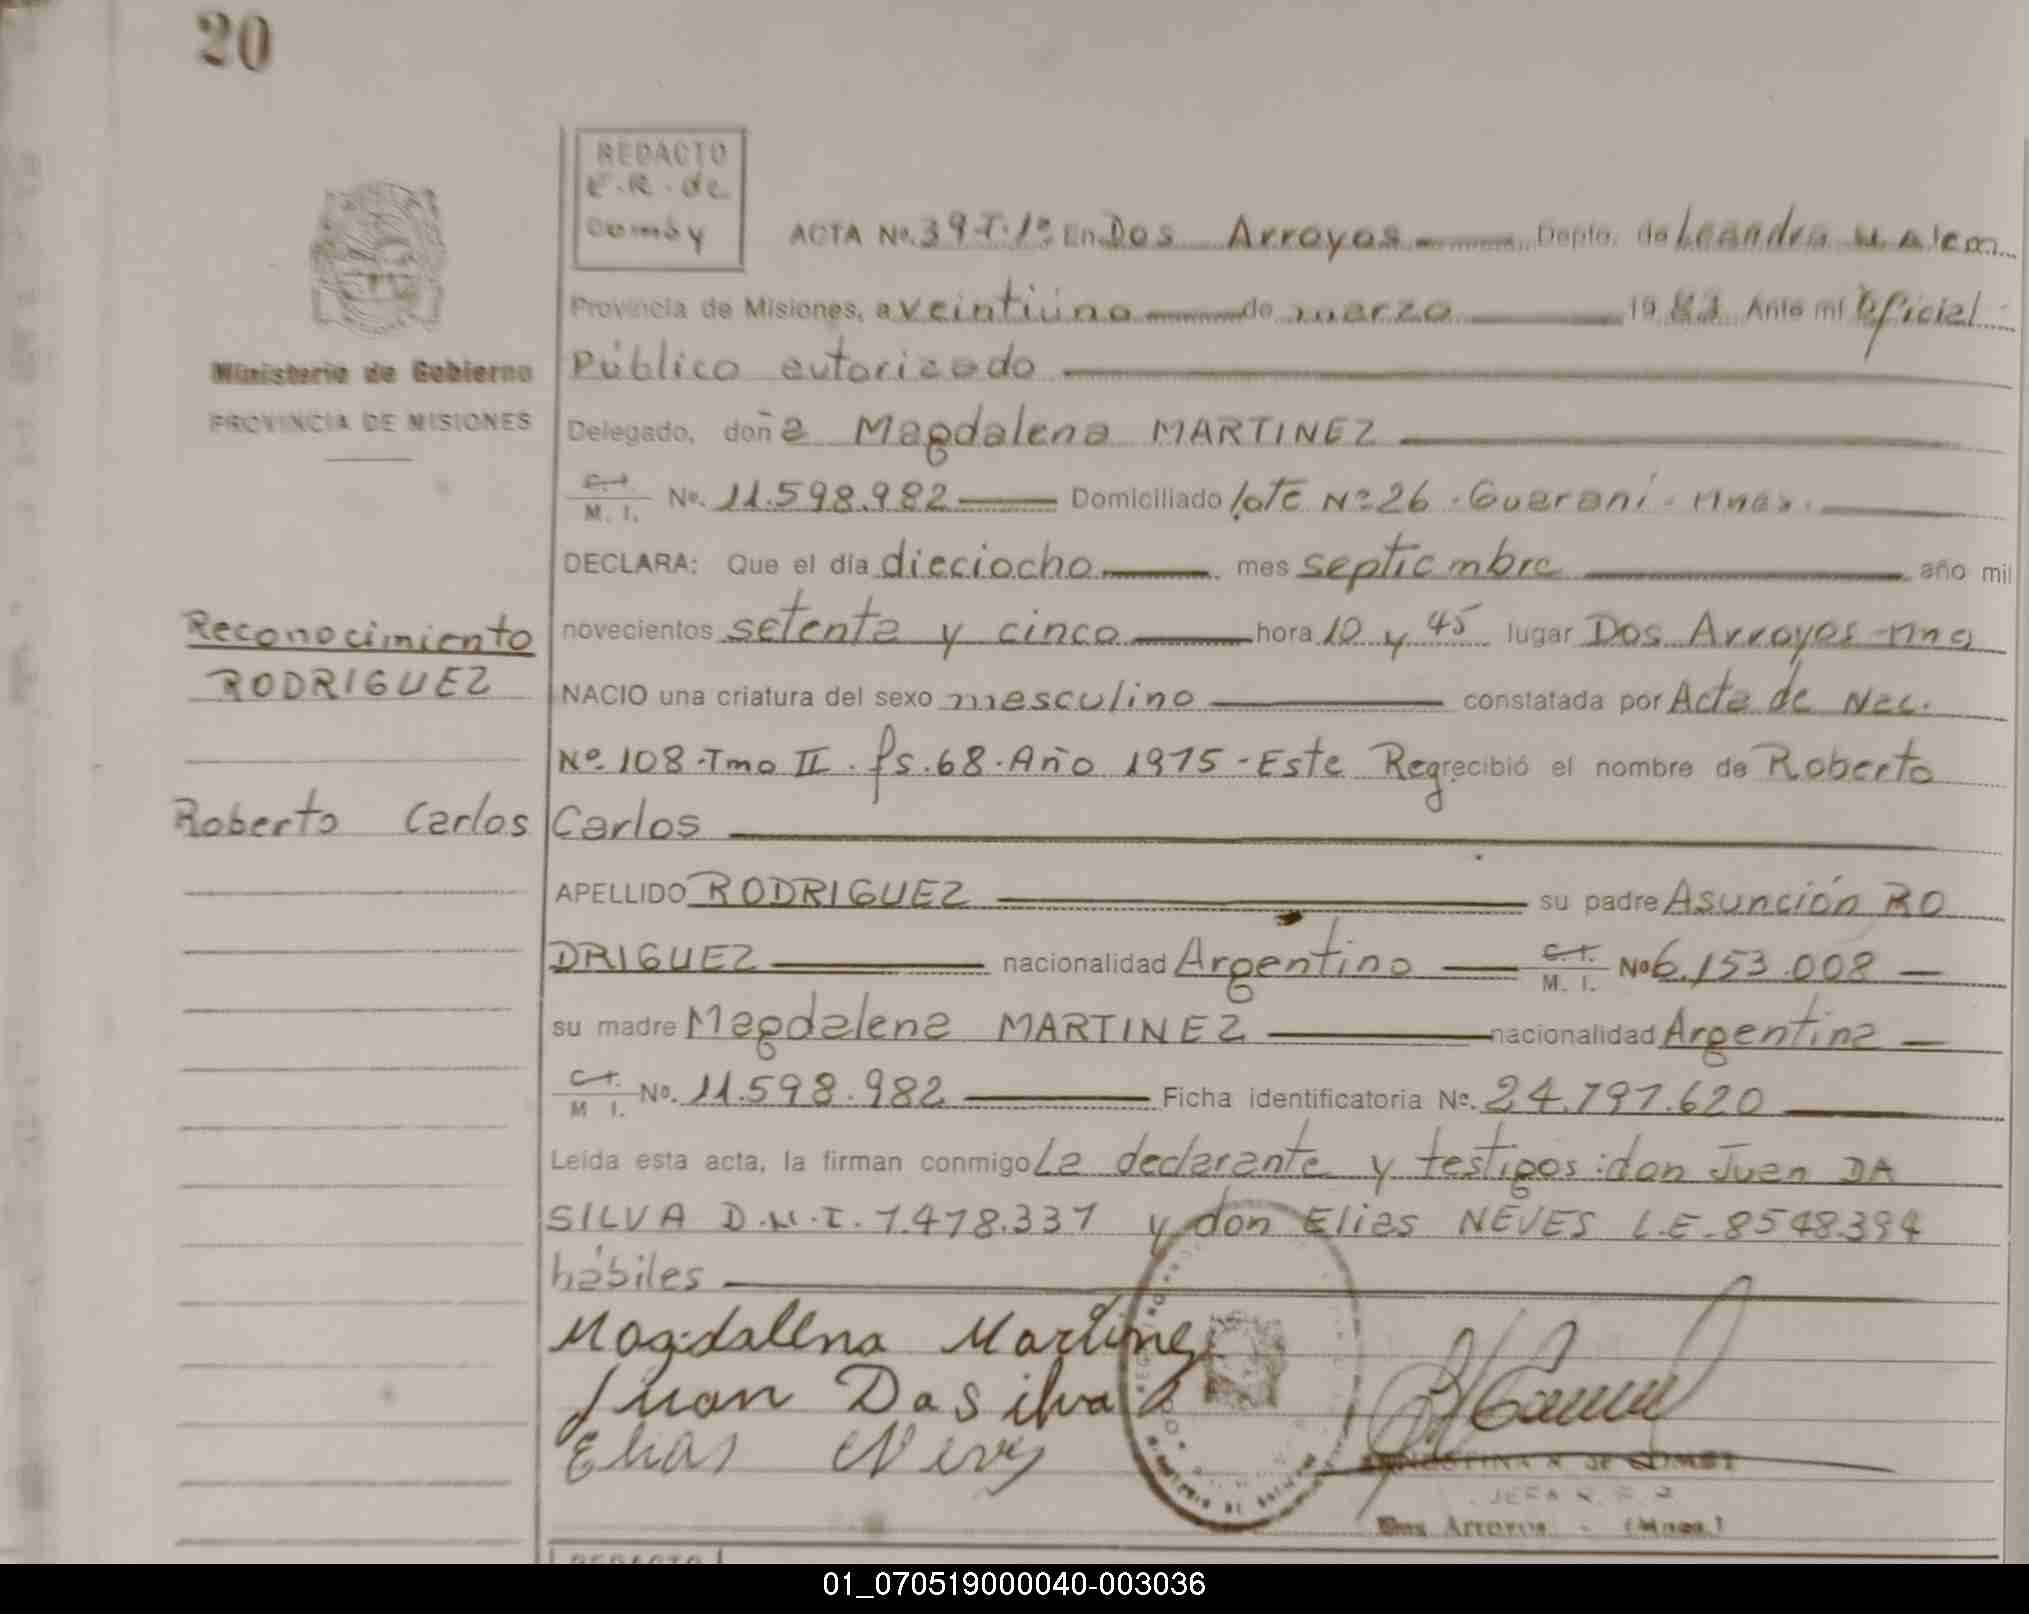 20
REDACTO
E.R. de
Comby
ACTA No. 39-T.1º En Dos Arroyos Depto. de Leandro N. Alem
Provincia de Misiones, a veintiúno de marzo 1983 Ante mi Oficial
Público autorizado
Ministerio de Gobierno
PROVINCIA DE MISIONES
Delegado, doña Magdalena MARTINEZ
C.I.
M. I. No. 11.598.982 Domiciliado lote Nº 26 - Guaraní - Mnes.
DECLARA: Que el día dieciocho mes septiembre año mil
novecientos setenta y cinco hora 10 y 45 lugar Dos Arroyos - Mnes
Reconocimiento
RODRIGUEZ
NACIO una criatura del sexo masculino constatada por Acta de Nac.
Nº 108 - Tmo II . fs. 68 - Año 1975 - Este Reg recibió el nombre de Roberto
Roberto Carlos
Carlos
APELLIDO RODRIGUEZ su padre Asunción RO
DRIGUEZ nacionalidad Argentino C.I.
M. I. No 6.153.008
su madre Magdalena MARTINEZ nacionalidad Argentina
C.I.
M I. No. 11.598.982 Ficha identificatoria No. 24.797.620
Leída esta acta, la firman conmigo La declarante y testigos: don Juan DA
SILVA D.N.I. 7.478.337 y don Elias NEVES L.E. 8548394
hábiles
Magdalena Martinez
Juan Da Silva
Elias Neves
JEFA R.
Dos Arroyos - (Mnes.)
REDACTO
01_070519000040-003036